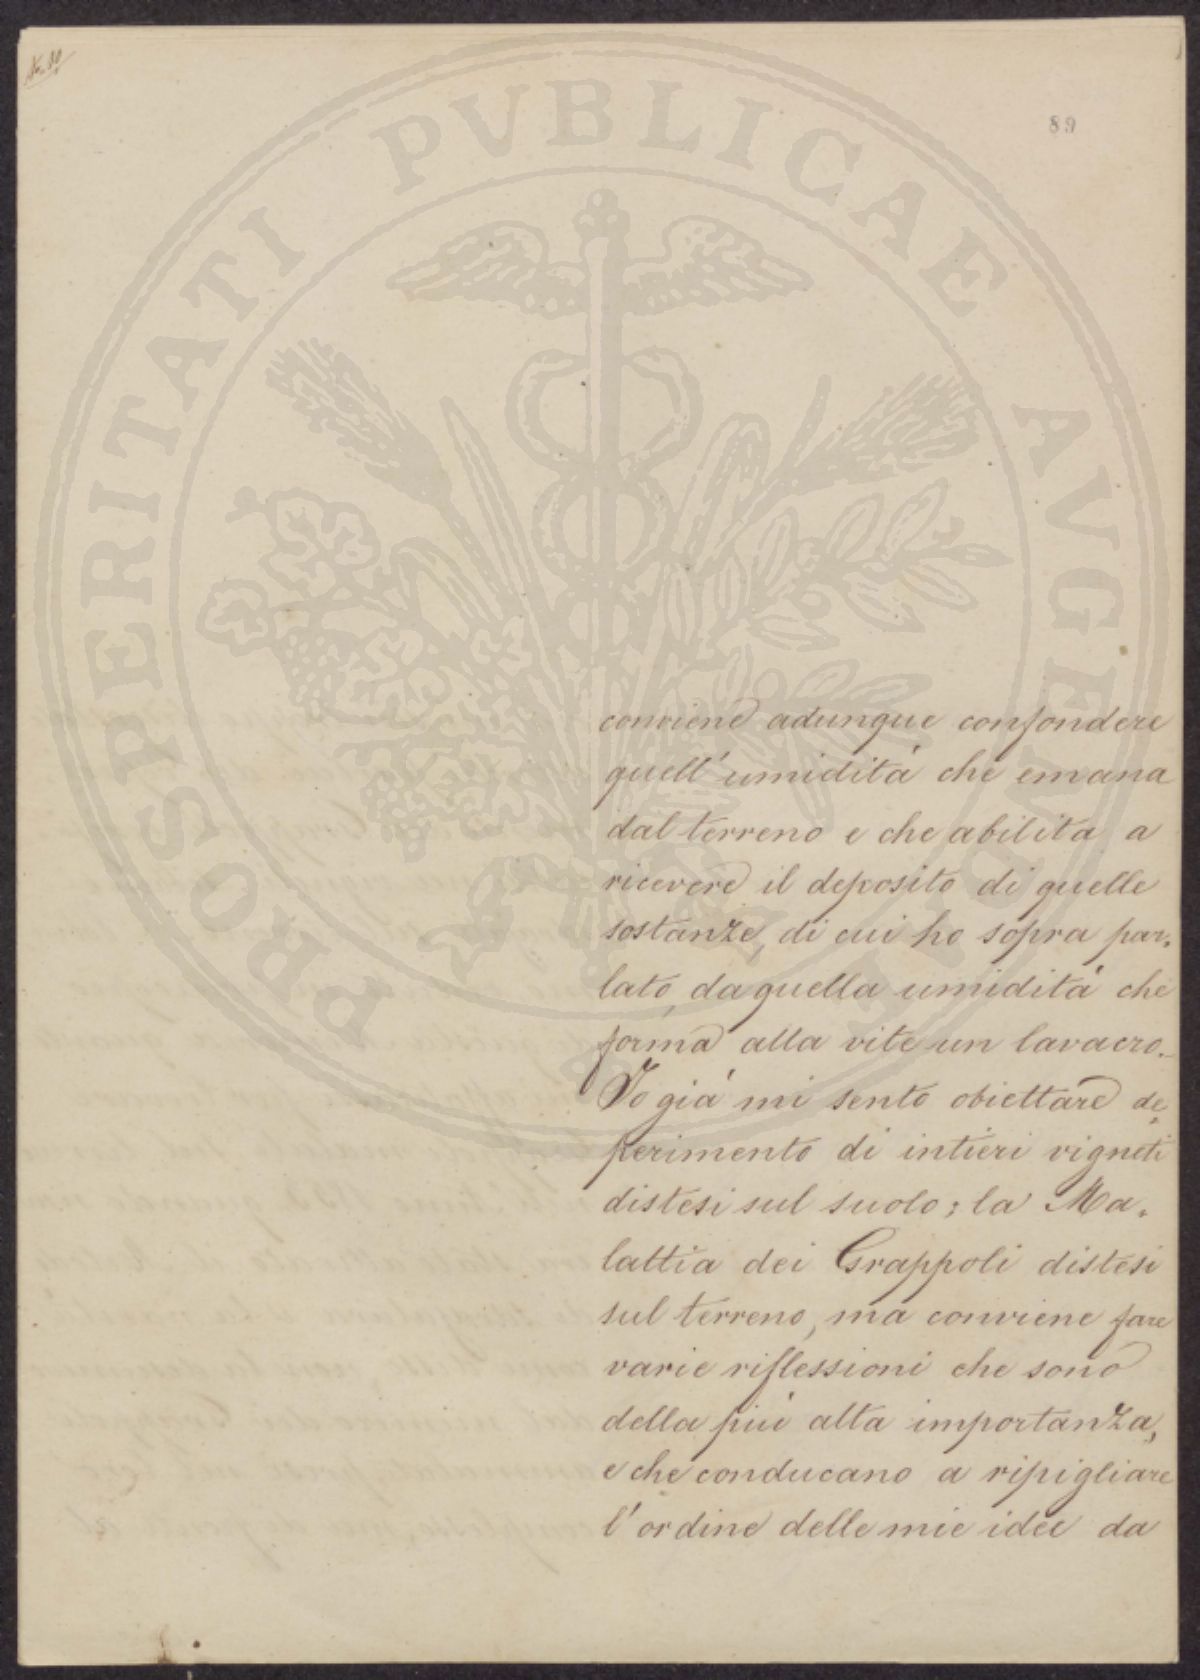 89
PROSPERITATI PUBLICAE AVGENDAE
conviene adunque confondere
quell' umidità che emana
dal terreno e che abilita a
ricevere il deposito di quelle
sostanze, di cui ho sopra par=
lato, da quella umidità che
forma alla vite un lavacro.
Io già mi sento obiettare de=
perimento di intieri vigneti
distesi sul suolo; la Ma=
lattia dei Grappoli distesi
sul terreno, ma conviene fare
varie riflessioni che sono
della più alta importanza,
e che conducano a ripigliare
l'ordine delle mie idee da